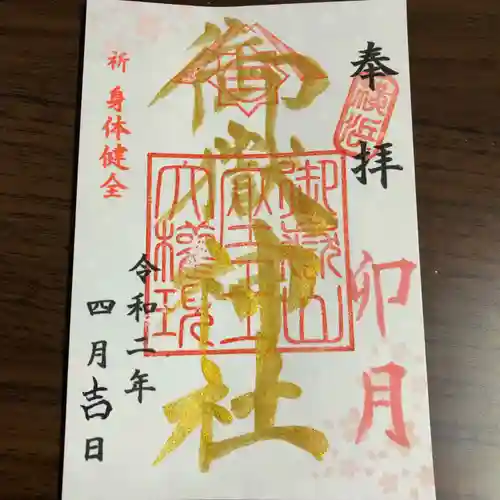 奉拝
横浜
卯月
御嶽神社
御嶽山
大権現
祈 身体健全
令和二年
四月吉日